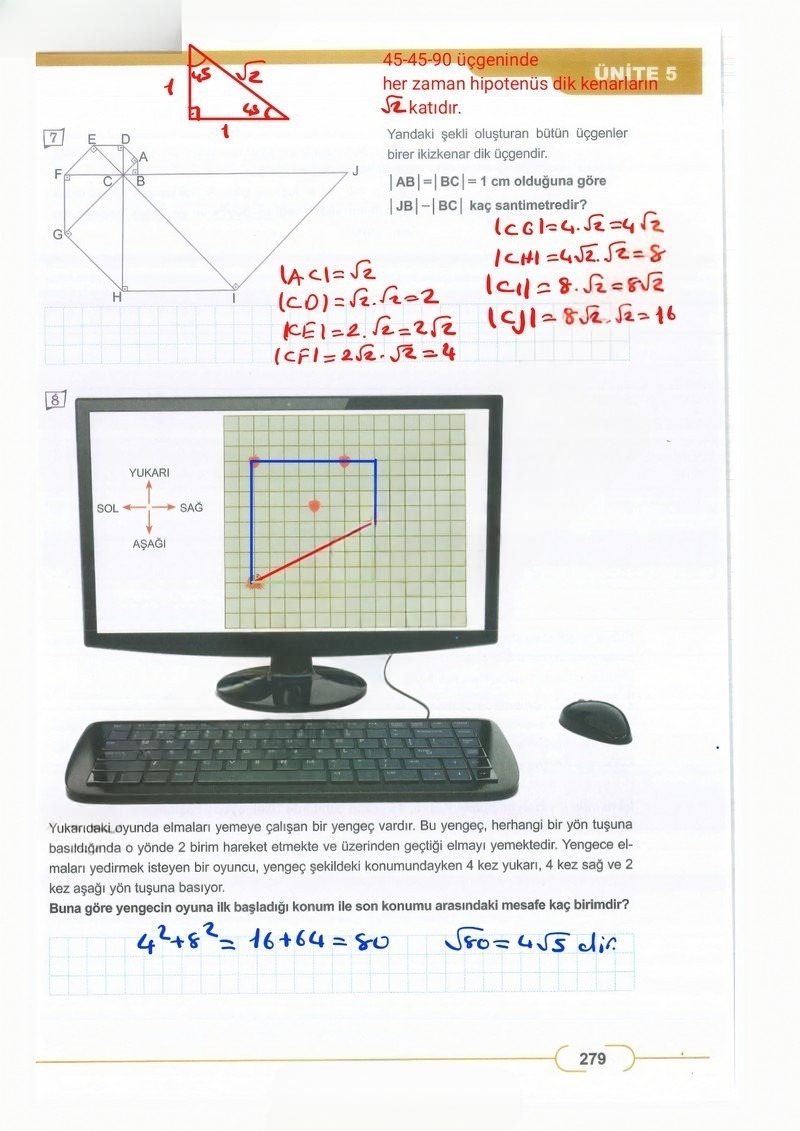 45-45-90 üçgeninde
ÜNİTE 5
her zaman hipotenüs dik kenarların
√2 katıdır.
1 45 √2 45 1
7
Yandaki şekli oluşturan bütün üçgenler
birer ikizkenar dik üçgendir.
|AB| = |BC| = 1 cm olduğuna göre
|JB| − |BC| kaç santimetredir?
E D
A
F C B J
G
H I
|AC| = √2
|CD| = √2.√2 = 2
|CE| = 2.√2 = 2√2
|CF| = 2√2.√2 = 4
|CG| = 4.√2 = 4√2
|CH| = 4√2.√2 = 8
|CI| = 8.√2 = 8√2
|CJ| = 8√2.√2 = 16
8
YUKARI
SOL SAĞ
AŞAĞI
Yukarıdaki oyunda elmaları yemeye çalışan bir yengeç vardır. Bu yengeç, herhangi bir yön tuşuna
basıldığında o yönde 2 birim hareket etmekte ve üzerinden geçtiği elmayı yemektedir. Yengece el-
maları yedirmek isteyen bir oyuncu, yengeç şekildeki konumundayken 4 kez yukarı, 4 kez sağ ve 2
kez aşağı yön tuşuna basıyor.
Buna göre yengecin oyuna ilk başladığı konum ile son konumu arasındaki mesafe kaç birimdir?
4²+8² = 16+64 = 80 √80 = 4√5 dir.
279